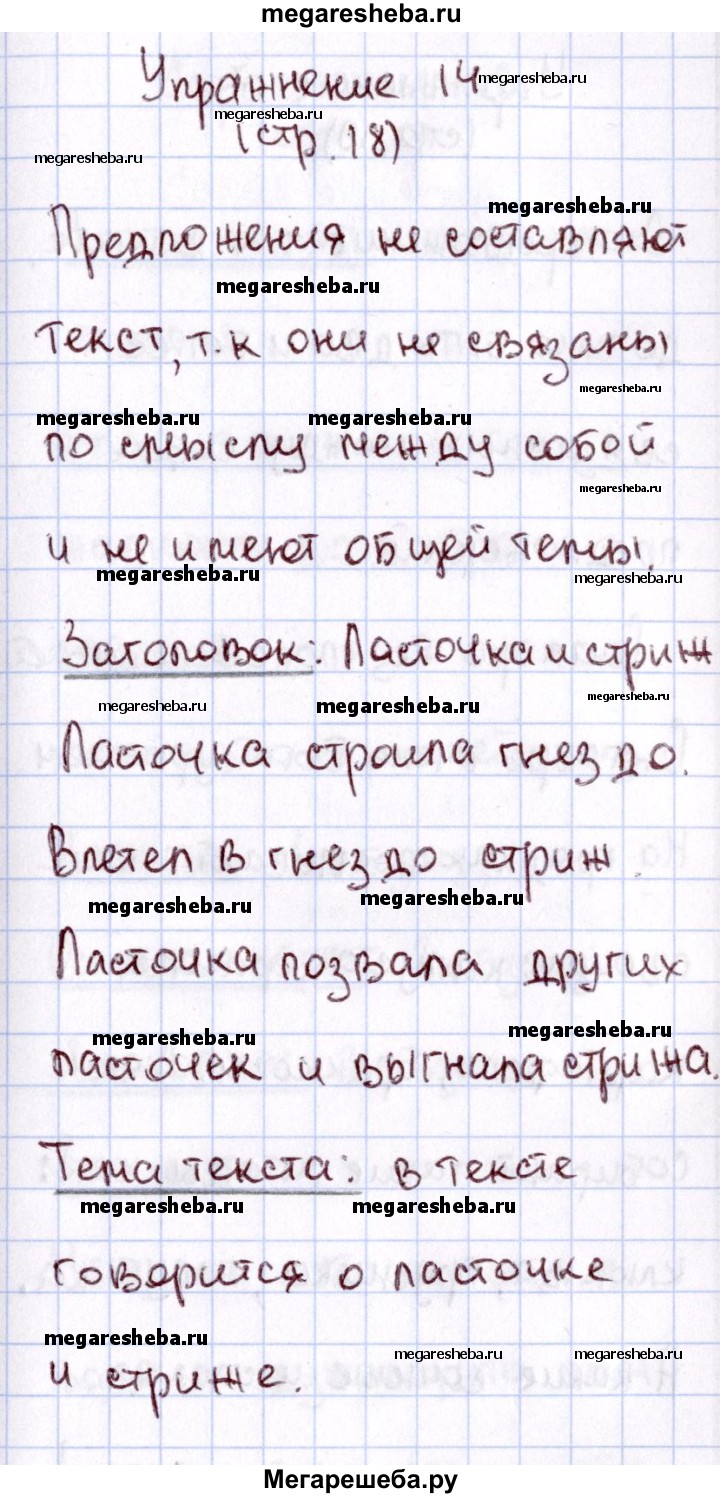 megaresheba.ru
Упражнение 14 megaresheba.ru
megaresheba.ru
(стр. 18)
megaresheba.ru
megaresheba.ru
Предложения не составляют
megaresheba.ru
текст, т.к они не связаны
megaresheba.ru
megaresheba.ru megaresheba.ru
по смыслу между собой
megaresheba.ru
и не имеют общей темы.
megaresheba.ru megaresheba.ru
Заголовок: Ласточка и стриж
megaresheba.ru megaresheba.ru megaresheba.ru
Ласточка строила гнездо.
Влетел в гнездо стриж.
megaresheba.ru megaresheba.ru
Ласточка позвала других
megaresheba.ru megaresheba.ru
ласточек и выгнала стрижа.
Тема текста: в тексте
megaresheba.ru megaresheba.ru
говорится о ласточке
megaresheba.ru megaresheba.ru megaresheba.ru
и стриже.
Мегарешеба.ру